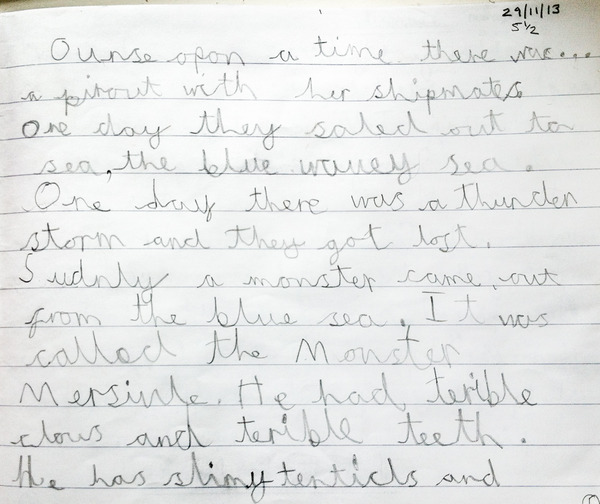 29/11/13
5½
Ounse opon a time there was...
a pirout with her shipmates
One day they saled out to
sea, the blue wauey sea.
One day there was a thunder
storm and they got lost.
Sudnly a monster came out
from the blue sea. It was
called the Monster
Mersinle. He had terible
clous and terible teeth.
He has slimy tenticls and